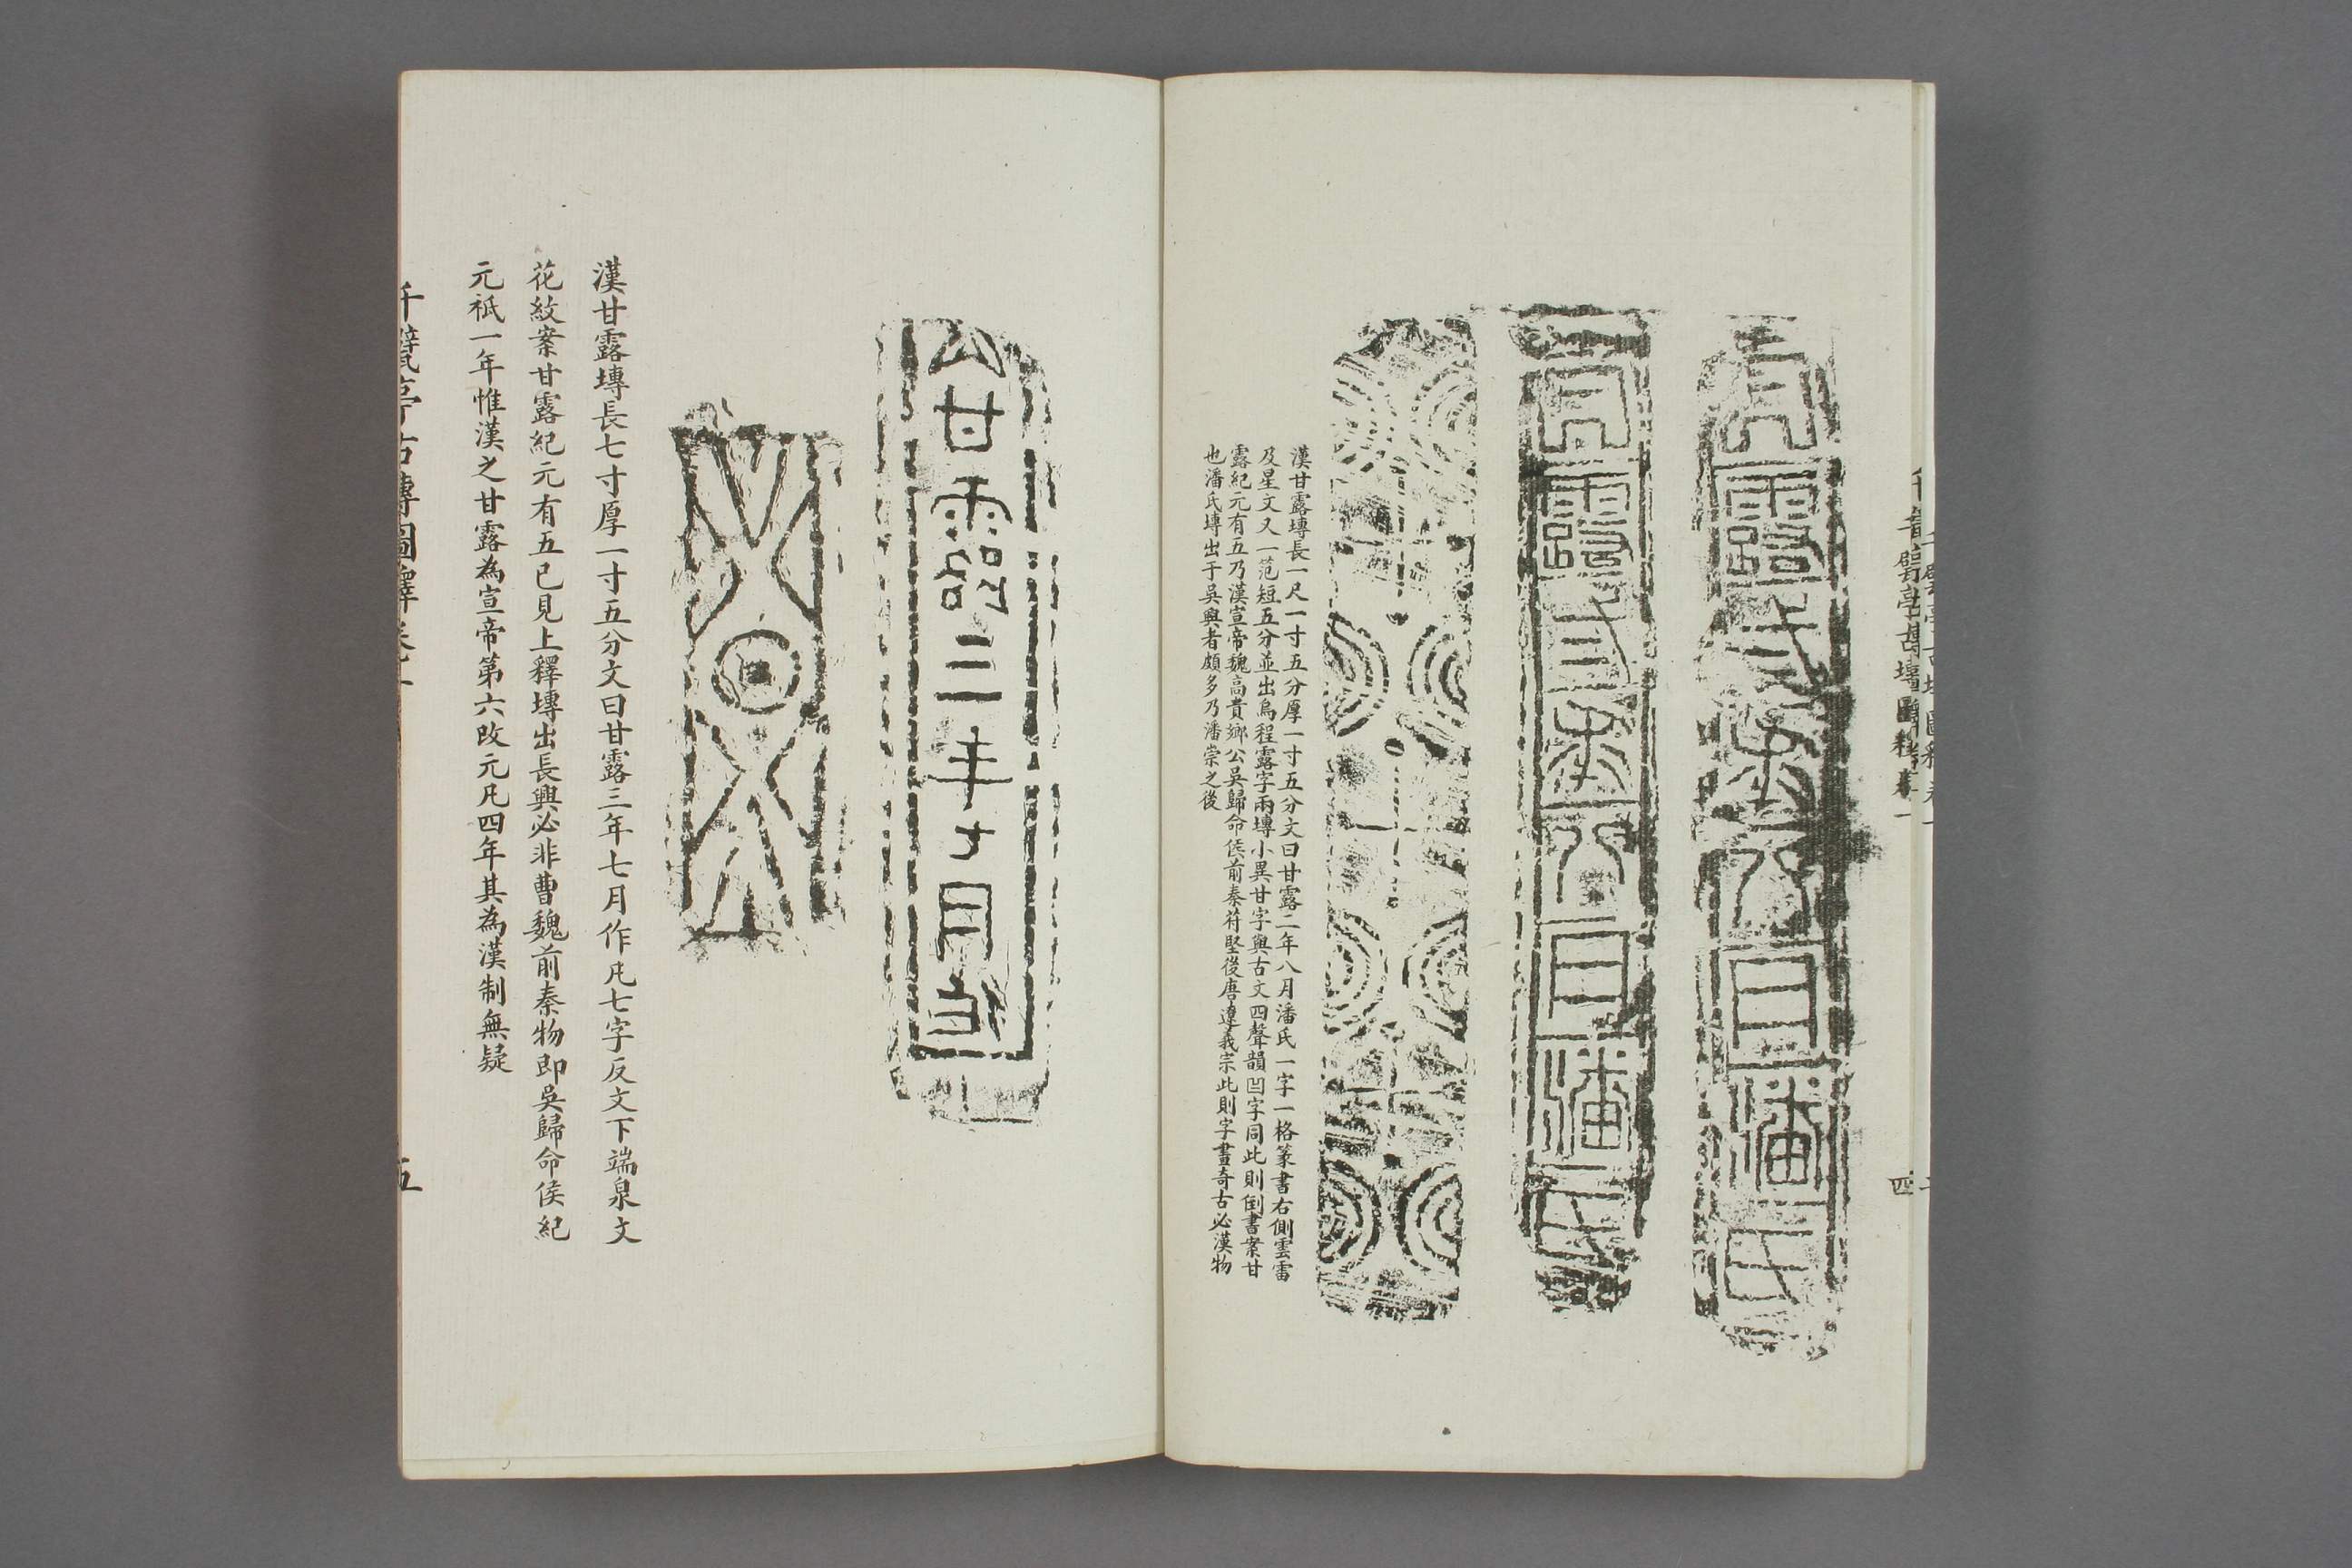 甘露二年八月潘氏
甘露二年八月潘氏
漢甘露塼長一尺一寸五分厚一寸五分文曰甘露二年八月潘氏一字一格篆書右側雲雷
及星文又一范短五分並出烏程露字兩塼小異甘字與古文四聲韻凹字同此則倒書案甘
露紀元有五乃漢宣帝魏高貴鄉公吳歸命侯前秦苻堅後唐遵義宗此則字畫奇古必漢物
也潘氏塼出于吳興者頗多乃潘崇之後
四
甘露三年七月
漢甘露塼長七寸厚一寸五分文曰甘露三年七月作凡七字反文下端泉文
花紋案甘露紀元有五已見上釋塼出長興必非曹魏前秦物即吳歸命侯紀
元祇一年惟漢之甘露為宣帝第六改元凡四年其為漢制無疑
千甓亭古塼圖釋卷一
五